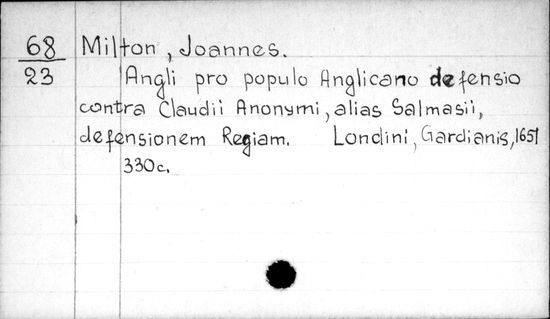 68 Milton, Joannes.
23 Angli pro populo Anglicano defensio
contra Claudii Anonymi, alias Salmasii,
defensionem Regiam. Londini, Gardianis, 1651
330c.